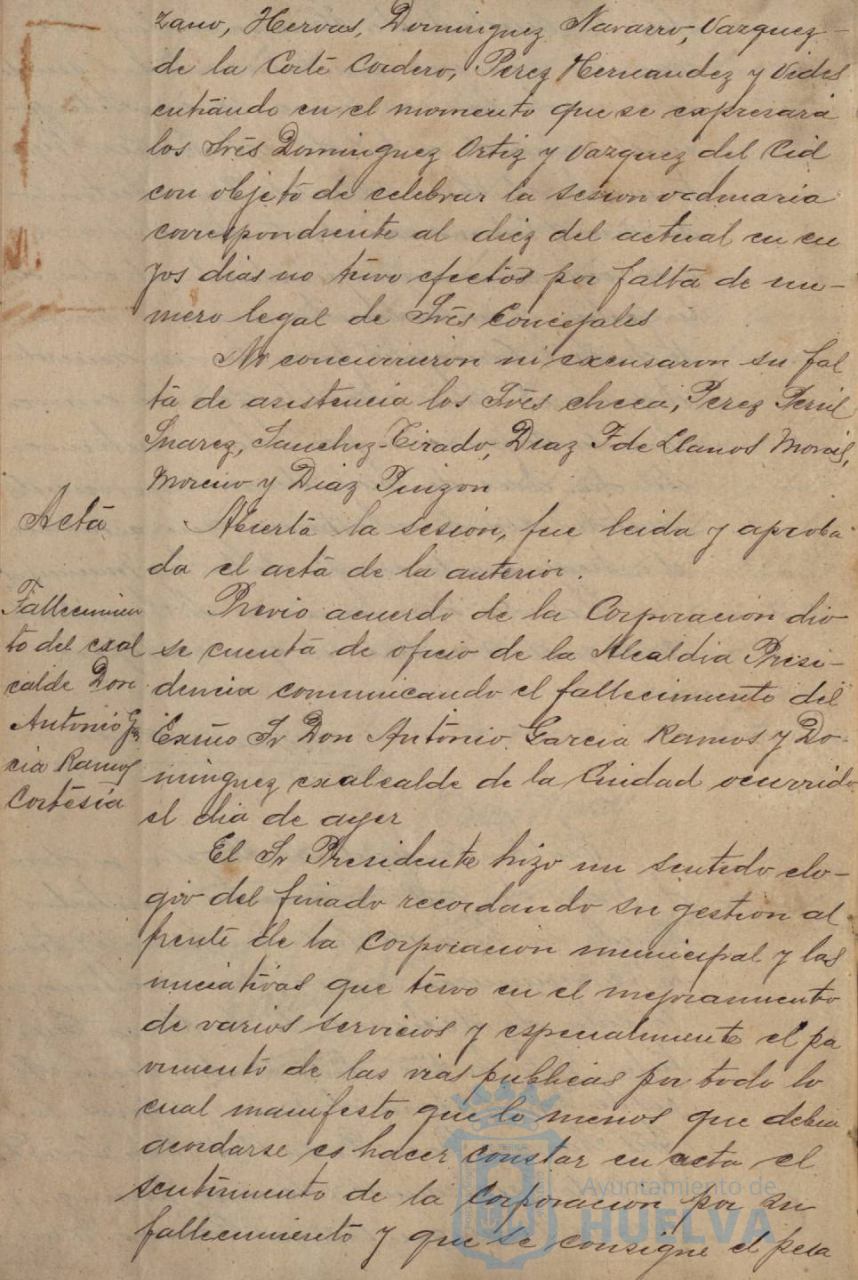 zano, Hervas, Dominguez Navarro, Vazquez
de la Corte Cordero, Perez Hernandez y Vides
entrando en el momento que se expresará
los Srēs Dominguez Ortiz y Vazquez del Cid
con objeto de celebrar la sesion ordinaria
correspondiente al diez del actual en cu
yos dias no tuvo efectos por falta de nu-
mero legal de Srēs Concejales
No concurrieron ni excusaron su fal
ta de asistencia los Srēs checa, Perez
Suarez, Sanchez-Tirado, Diaz F de Llanos
Moreno y Diaz Pinzon
Acta
Abierta la sesion, fue leida y aproba
da el acta de la anterior.
Fallecimien
to del exal
calde Don
Antonio Gar
cia Ramos
Cortesia
Previo acuerdo de la Corporacion dio
se cuenta de oficio de la Alcaldia Presi-
dencia comunicando el fallecimiento del
Excmo Sr Don Antonio Garcia Ramos y Do-
minguez exalcalde de la Ciudad ocurrido
el dia de ayer
El Sr Presidente hizo un sentido elo-
gio del finado recordando su gestion al
frente de la Corporacion municipal y las
iniciativas que tuvo en el mejoramiento
de varios servicios y especialmente el pa
vimento de las vias publicas por todo lo
cual manifesto que lo menos que debia
acordarse es hacer constar en acta el
sentimiento de la Corporacion por su
fallecimiento y que se consigne el pesa
Ayuntamiento de
HUELVA